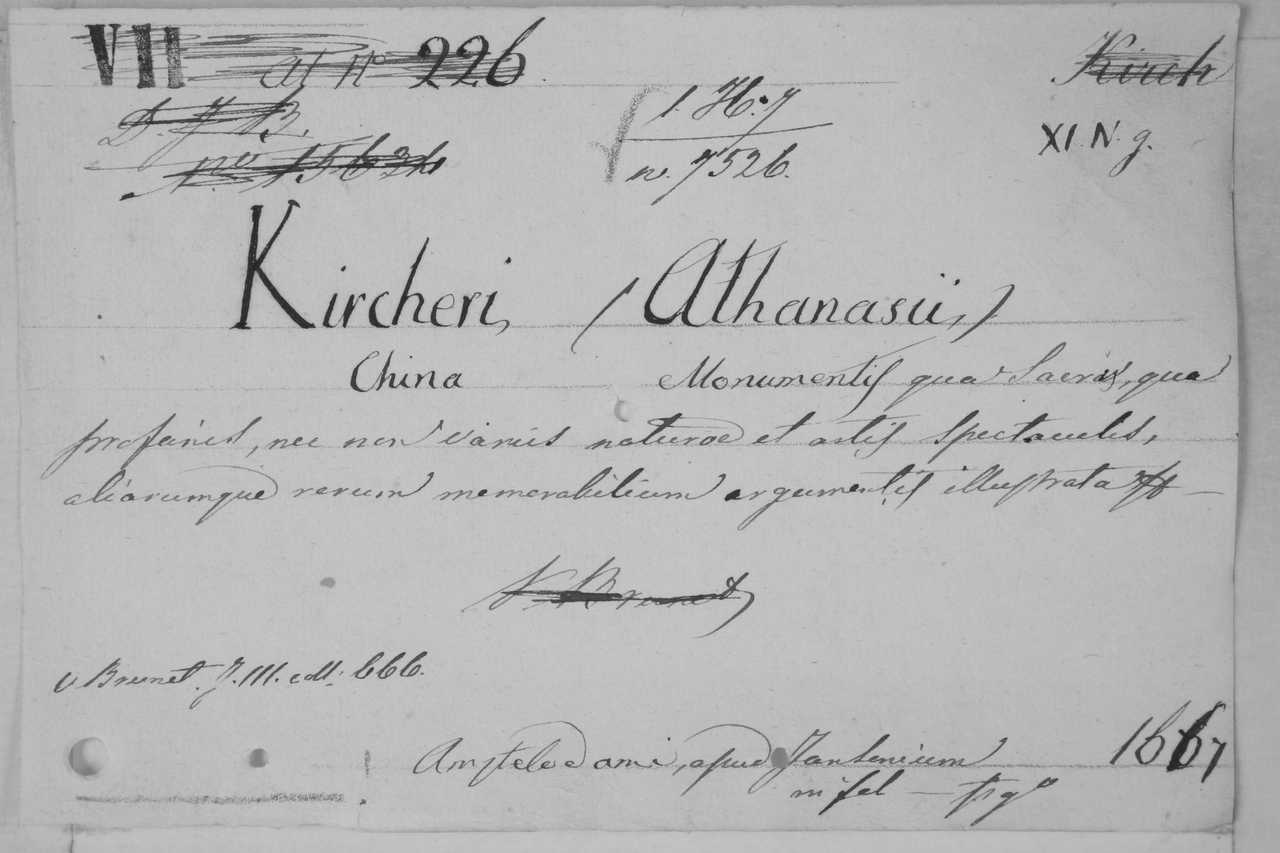 VII 226
Kirch
1. H. 7
n. 7526.
XI. N. g.
D. J. B.
Kircheri, (Athanasii,)
China Monumentis qua Sacris, qua
profanis, nec non variis naturae et artis spectaculis,
aliarumque rerum memorabilium argumentis illustrata
V. Brunet
v Brunet. J. III. coll: 666.
Amstelodami, apud Jansenium 1667
in fol